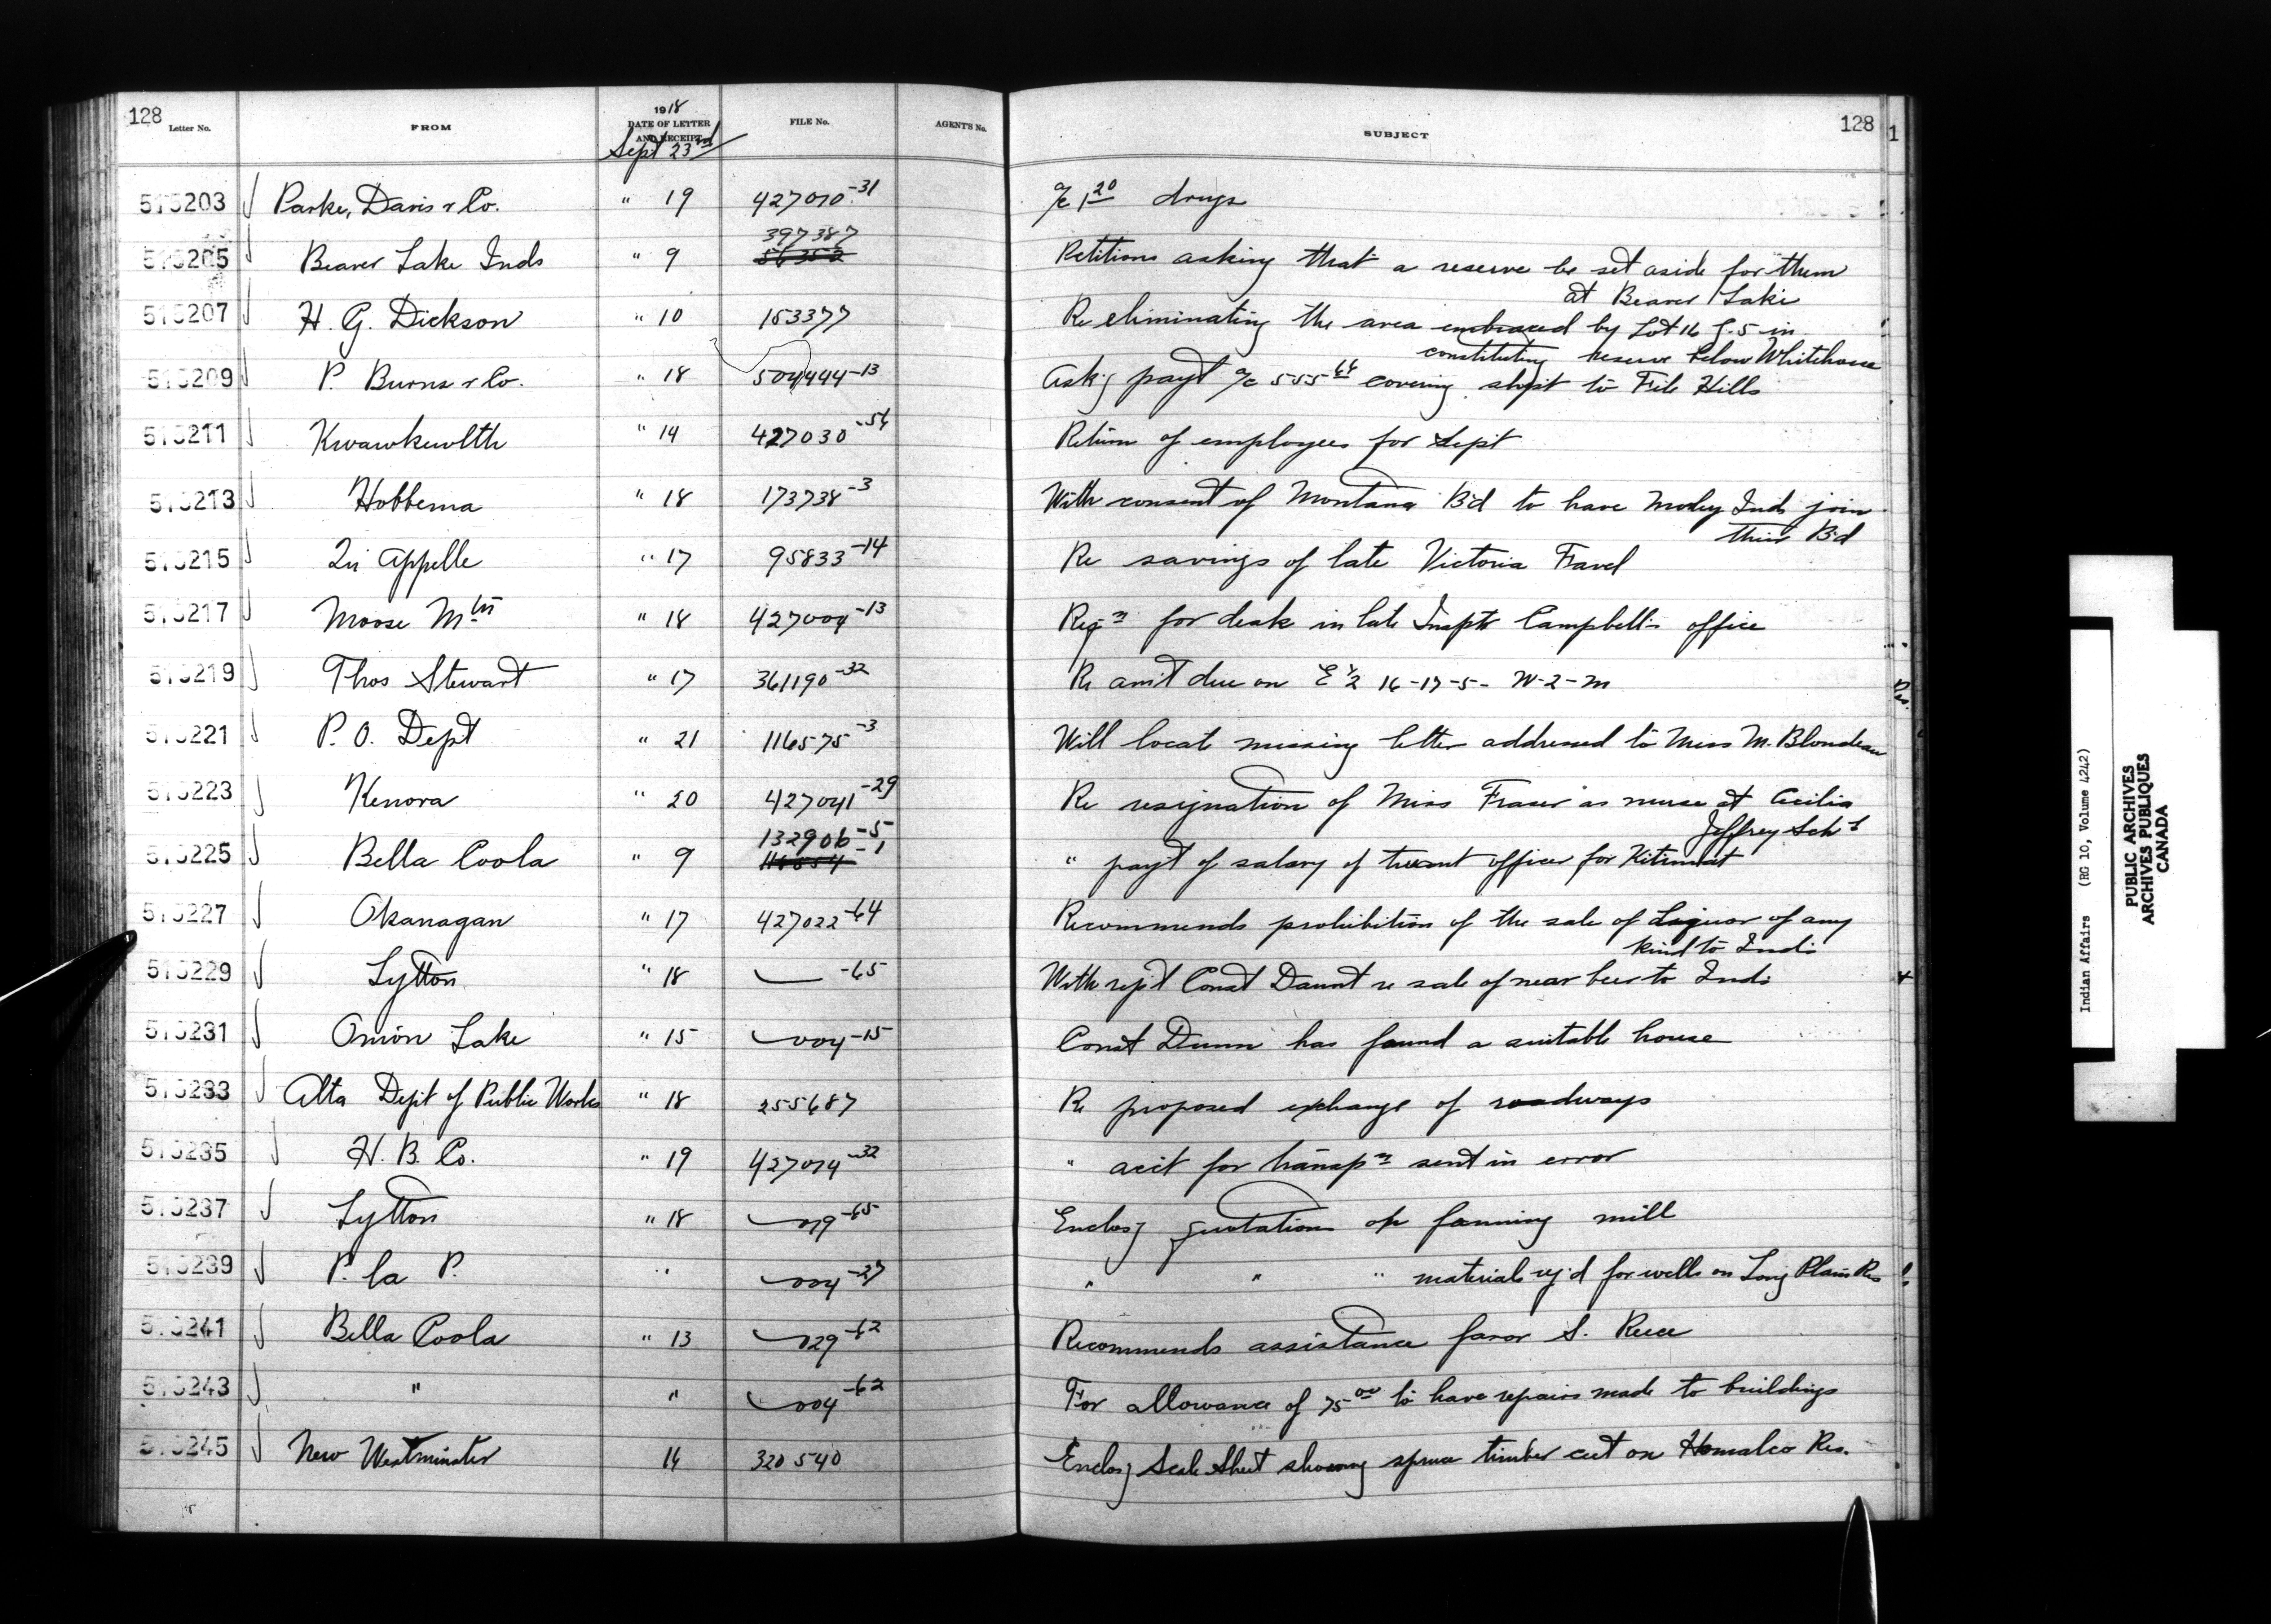 128 Letter No. FROM 1918 DATE OF LETTER AND RECEIPT FILE No. AGENT'S No. SUBJECT 128 1
Sept 23rd
515203 Parke, Davis & Co. " 19 427010-31 a/c 1 20 drugs
397387
515205 Beaver Lake Inds " 9 56352 Petitions asking that a reserve be set aside for them
at Beaver Lake
515207 H. G. Dickson " 10 153377 Re eliminating the area embraced by Lot 16 G. 5 in
constituting reserve below Whitehorse
515209 P. Burns & Co. " 18 504444-13 Askg payt a/c 555 64 covering shpt to File Hills
515211 Kwawkewlth " 14 427030-54 Return of employees for Sept
515213 Hobbema " 18 173738-3 With consent of Montana Bd to have Morley Inds join
their Bd
515215 Qu Appelle " 17 95833-14 Re savings of late Victoria Favel
515217 Moose Mtn " 18 427004-13 Reqn for desk in late Inspts Campbell's office
515219 Thos Stewart " 17 361190-32 Re amt due on E ½ 16-17-5- W-2-M
515221 P. O. Dept " 21 116575-3 Will locate missing letter addressed to Miss M. Blondeau
515223 Kenora " 20 427041-29 Re resignation of Miss Fraser as nurse at Cecilia
Jeffrey Schl
132906-5
515225 Bella Coola " 9 " payt of salary of truant officer for Kitimaat
515227 Okanagan " 17 427022-64 Recommends prohibition of the sale of Liquor of any
kind to Inds
515229 Lytton " 18 -65 With rept Const Daunt re sale of near beer to Inds
515231 Onion Lake " 15 004-15 Const Dunn has found a suitable house
515233 Alta Dept of Public Works " 18 255687 Re proposed exchange of roadways
515235 H. B. Co. " 19 427014-32 " acct for transpn sent in error
515237 Lytton " 18 019-65 Enclosg quotations op fanning mill
515239 P. la P. " 004-27 " " " materials reqd for wells on Long Plain Res
515241 Bella Coola " 13 029-62 Recommends assistance favor S. Reece
515243 " " 004-62 For allowance of 75 00 to have repairs made to buildings
515245 New Westminster 16 320540 Enclosg Scale Sheet showing spruce timber cut on Homalco Res.
Indian Affairs (RG 10, Volume 4242)
PUBLIC ARCHIVES
ARCHIVES PUBLIQUES
CANADA